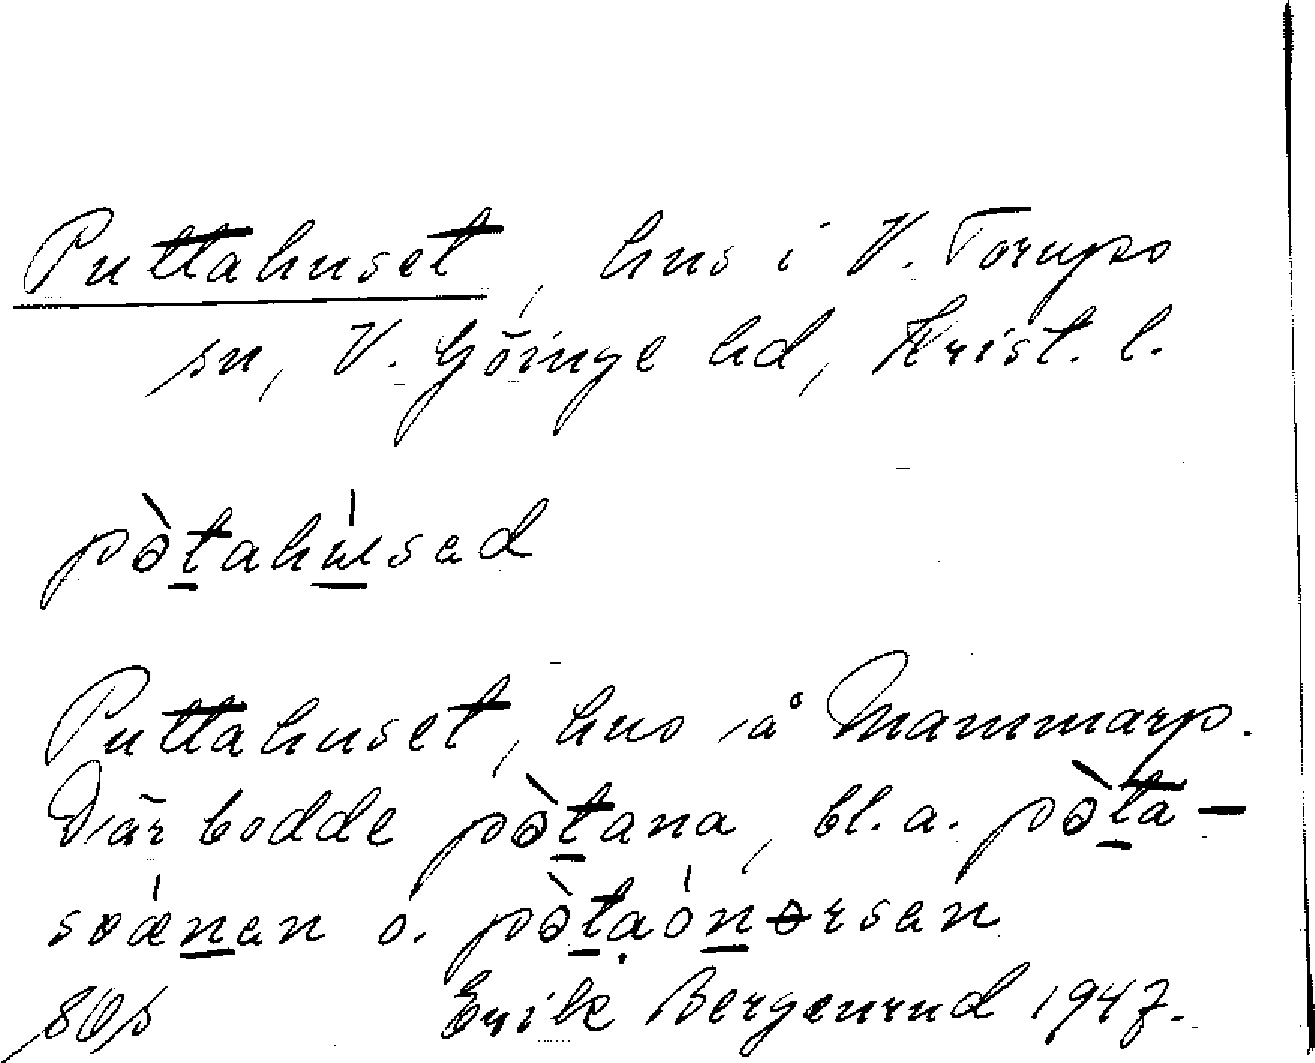 Puttahuset, hus i V. Torups
sn, V. Göinge hd, Krist. l.
pə̀t̲ahu̲̍sad
Puttahuset, hus å Mammarp.
Där bodde pə̀t̲ana, bl.a. pə̀t̲a-
svæ̍n̲an o. pə̀t̲ạón̲ɵrsan
Erik Bergenrud 1947.